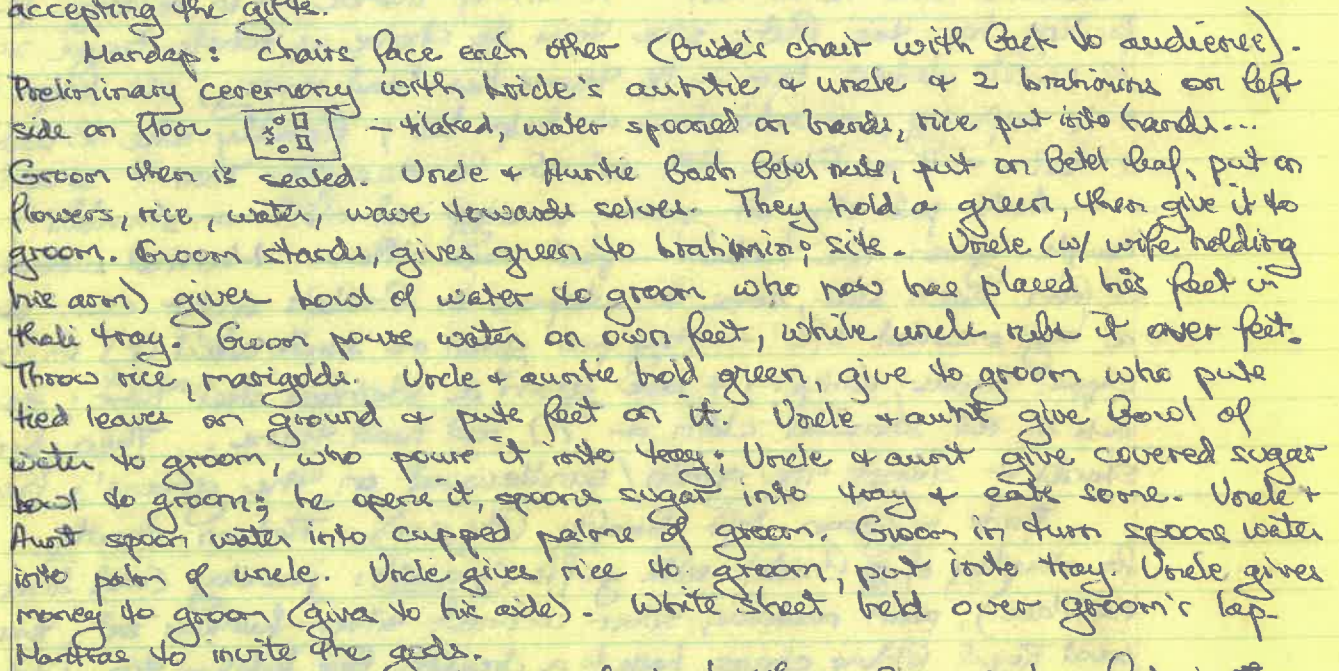 accepting the gifts.
Mandap: chairs face each other (bride's chair with back to audience).
Preliminary ceremony with bride's auntie & uncle & 2 brahimins on left
side on floor - tilaked, water spooned on hands, rice put into hands...
Groom then is seated. Uncle & Auntie each betel nuts, put on betel leaf, put on
flowers, rice, water, wave towards selves. They hold a green, then give it to
groom. Groom stands, gives green to brahimin; sits. Uncle (w/ wife holding
his arm) gives bowl of water to groom who now has placed his feet in
thali tray. Groom pours water on own feet, while uncle rubs it over feet.
Throw rice, marigolds. Uncle & auntie hold green, give to groom who puts
tied leaves on ground & puts feet on it. Uncle & aunt give bowl of
water to groom, who pours it into tray; Uncle & aunt give covered sugar
bowl to groom; he opens it, spoons sugar into tray & eats some. Uncle &
Aunt spoon water into cupped palms of groom. Groom in turn spoons water
into palm of uncle. Uncle gives rice to groom, put into tray. Uncle gives
money to groom (gives to his aide). White sheet held over groom's lap.
Mantras to invite the gods.